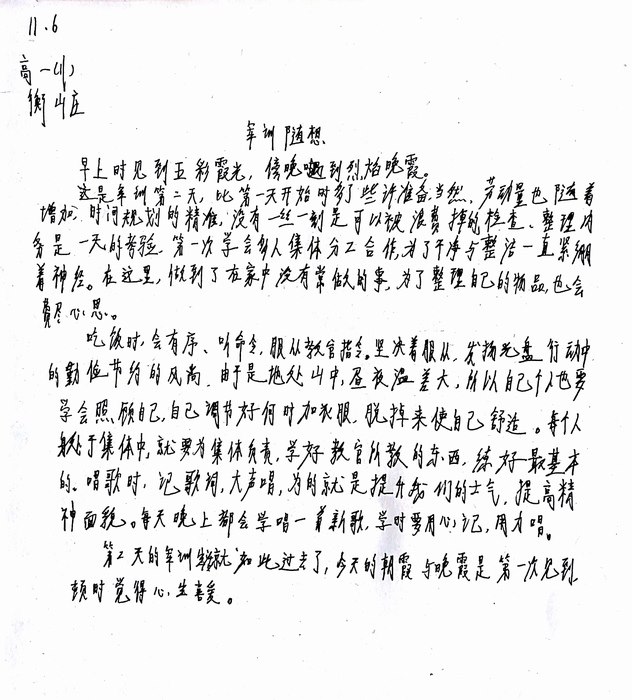 11.6
高一(1)
衡山庄
军训随想
早上时见到五彩霞光，傍晚看到烈焰晚霞。
这是军训第二天，比第一天开始时多了些许准备。当然，劳动量也随着
增加。时间规划的精准，没有一丝一刻是可以被浪费掉的检查、整理内
务是一天的考验。第一次学会多人集体分工合作，为了干净与整洁一直紧绷
着神经。在这里，做到了在家中没有常做的事，为了整理自己的物品，也会
费尽心思。
吃饭时，会有序、听命令，服从教官指令。坚决着服从，发扬光盘行动中
的勤俭节约的风尚。由于是地处山中，昼夜温差大，所以自己个人也要
学会照顾自己，自己调节好何时加衣服，脱掉来使自己舒适。每个人
身处于集体中，就要为集体负责，学好教官所教的东西，练好最基本
的。唱歌时，记歌词，大声唱，为的就是提升我们的士气，提高精
神面貌。每天晚上都会学唱一首新歌，学时要用心记，用力唱。
第二天的军训就如此过去了，今天的朝霞与晚霞是第一次见到，
顿时觉得心生喜爱。